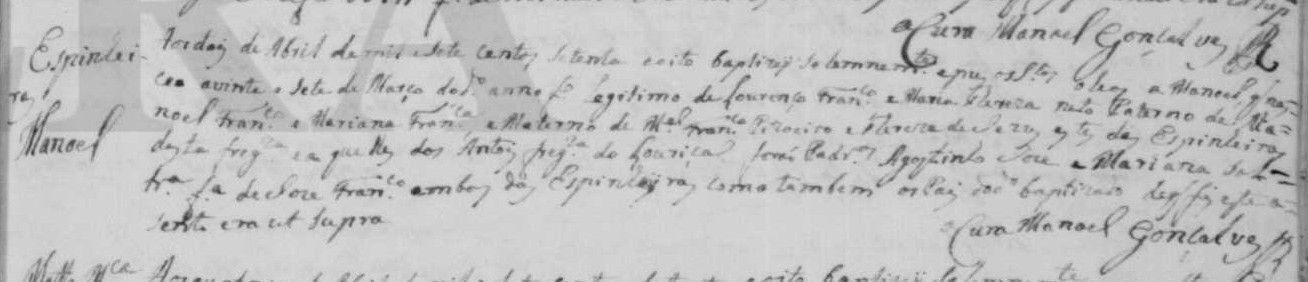 o Cura Manoel Gonçalvez
Espinlei- Aos doiz de Abril de mil e sete centos setenta e oito baptizej solemnemte. e puz os Stos. oleoz a Manoel, q̃ na-
raz ceo a vinte e sete de Março do do. anno fo. legitimo de Lourenço Franco. e Maria Thereza neto Paterno de Ma-
Manoel noel Franco. e Mariana Franca. e Materno de Mel. Franco. e Thereza de Jezuz estes das Espinleiras
desta fregza. e aquelles dos Antoz fregza. do Louriçal forão Padros. Agostinho Joze e Mariana sol-
tra. fa. de Joze Franco. ambos das Espinleiras como tambem os Pais do do. baptizado de q̃ fiz este a-
sento era ut supra
o Cura Manoel Gonçalvez